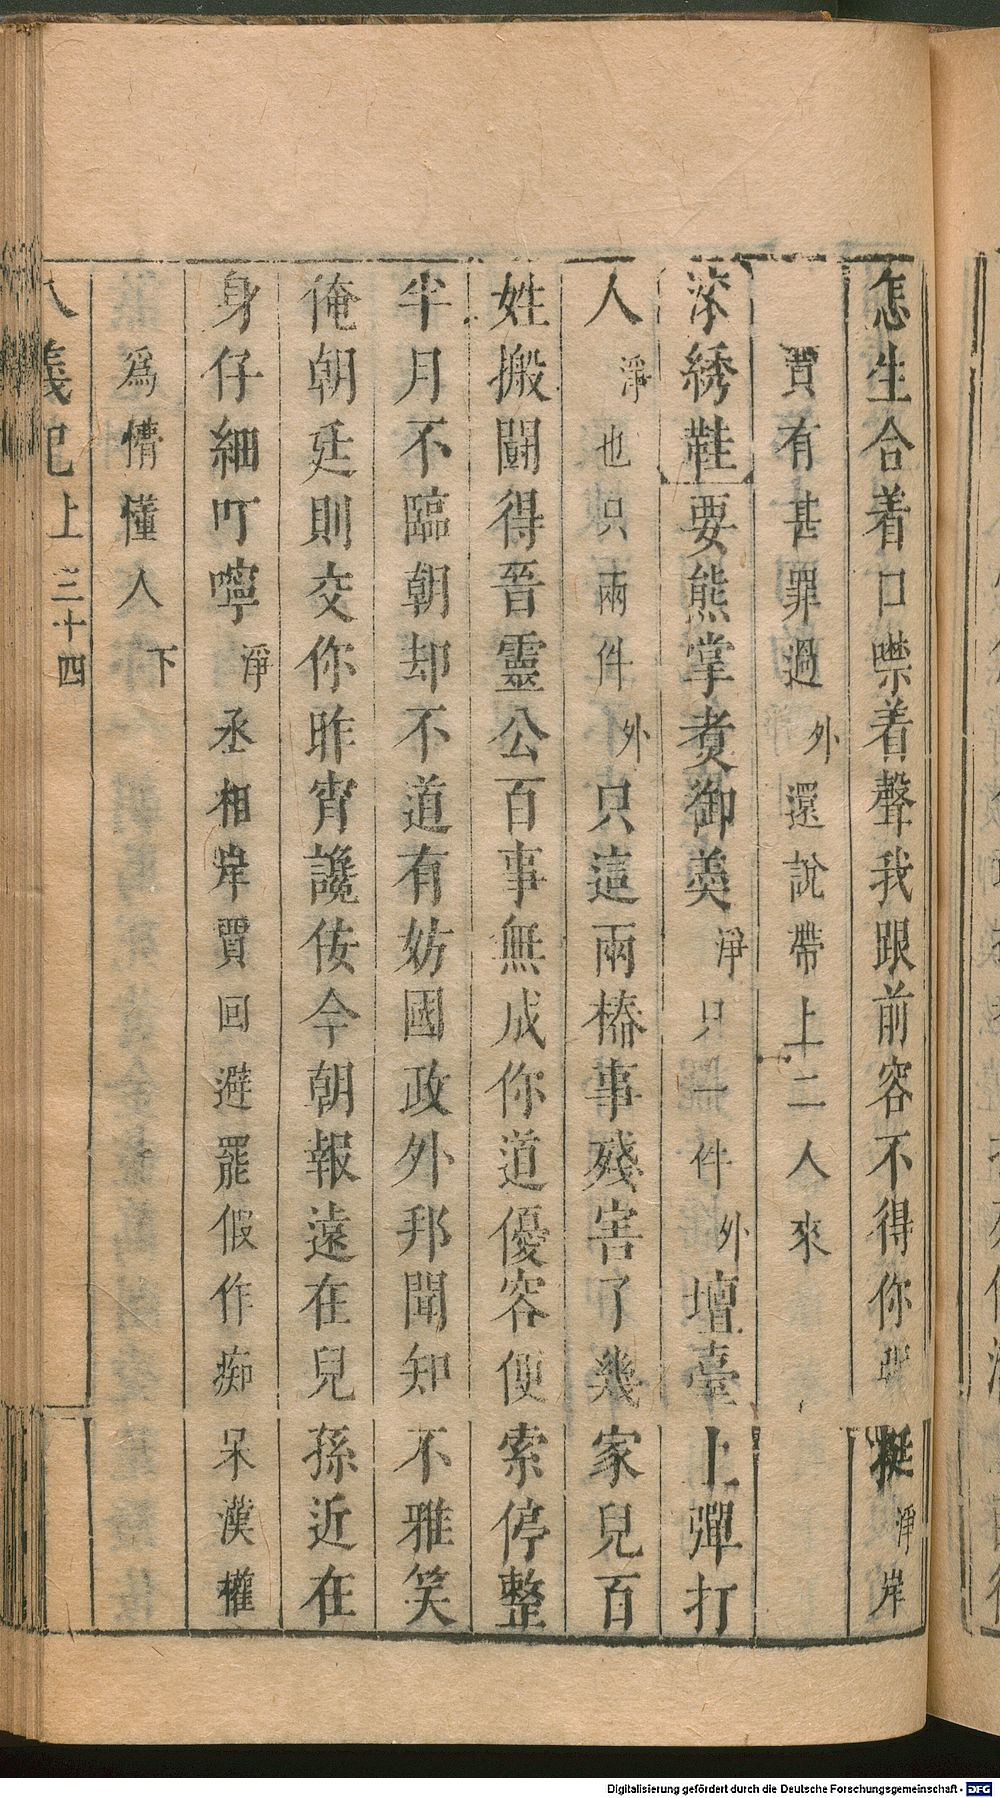 怎生合着口噤着聲我跟前容不得你 挺淨岸
賈有甚罪過外還說帶上二人來
滚綉鞋要熊掌煑御羮淨只一件外壇臺上彈打
人淨也只兩件外只這兩樁事殘害了幾家兒百
姓搬鬭得晉靈公百事無成你道優容便索停整
半月不臨朝却不道有妨國政外邦聞知不雅笑
俺朝廷則交你昨宵讒佞今朝報遠在兒孫近在
身仔細叮嚀淨丞相岸賈回避罷假作痴呆漢權
爲懵懂人下
八義記上 三十四
Digitalisierung gefördert durch die Deutsche Forschungsgemeinschaft - DFG